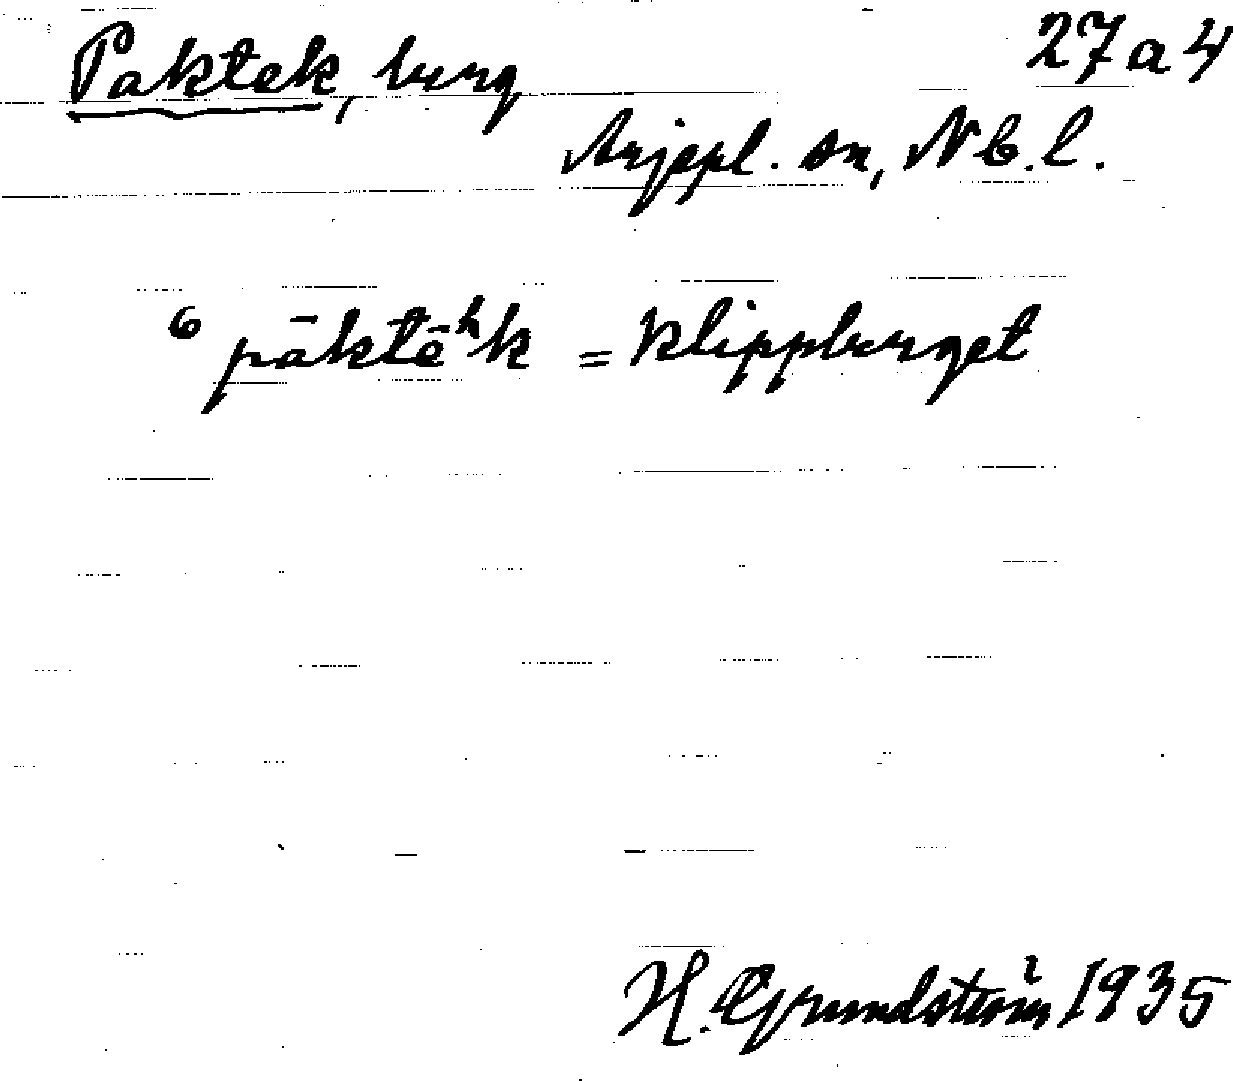 Paktek, berg 27a4
Arjepl. sn, Nb.l.
6 pāktēʰk = klippberget
H. Grundström 1935